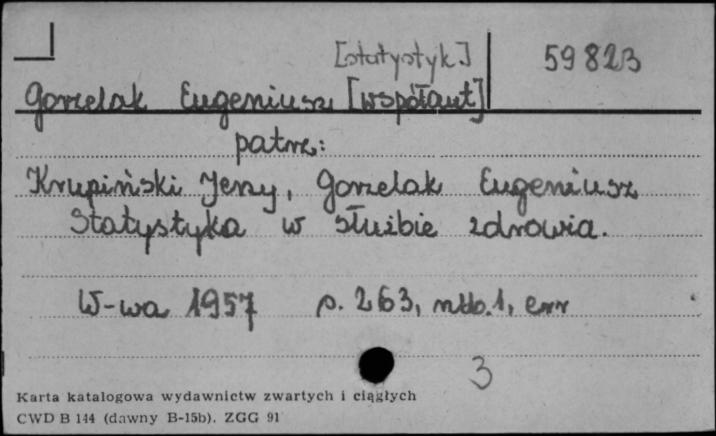 [statystyk] 59823
Gorzelak Eugeniusz [współaut]
patrz:
Krupiński Jerzy, Gorzelak Eugeniusz
Statystyka w służbie zdrowia.
W-wa 1957 s. 263, nlb. 1, err
3
Karta katalogowa wydawnictw zwartych i ciągłych
CWD B 144 (dawny B-15b). ZGG 91